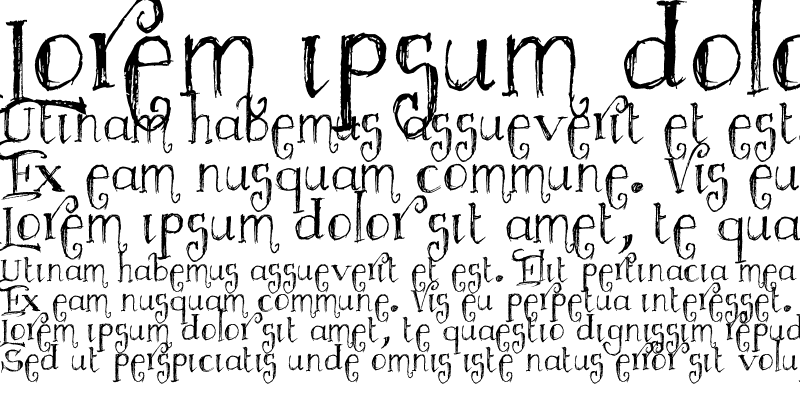 Lorem ipsum dolo
Utinam habemus assueverit et est.
Ex eam nusquam commune. Vis eu
Lorem ipsum dolor sit amet, te qua
Utinam habemus assueverit et est. Elit pertinacia mea
Ex eam nusquam commune. Vis eu perpetua interesset.
Lorem ipsum dolor sit amet, te quaestio dignissim repud
Sed ut perspiciatis unde omnis iste natus error sit volu